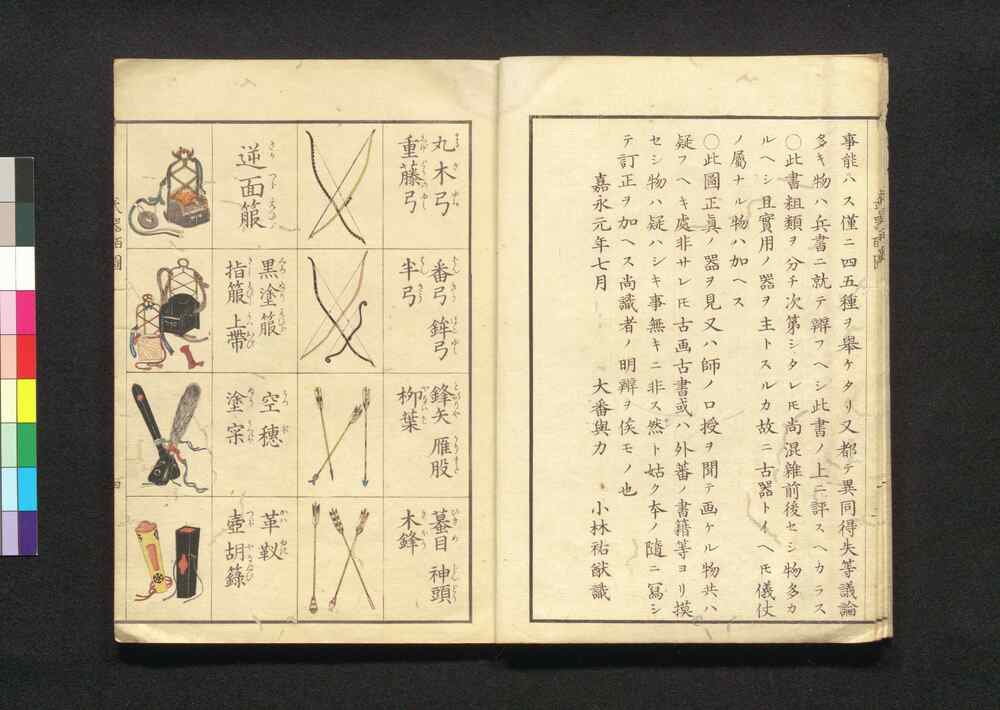 事能ハス僅ニ四五種ヲ舉ケタリ又都テ異同得失等議論
多キ物ハ兵書ニ就テ辯フヘシ此書ノ上ニ評スヘカラス
〇此書粗類ヲ分チ次第シタレ𪜈尚混雜前後セシ物多カ
ルヘシ且實用ノ器ヲ主トスルカ故ニ古器トイヘ𪜈儀仗
ノ屬ナル物ハ加ヘス
〇此圖正眞ノ器ヲ見又ハ師ノ口授ヲ聞テ画ケル物共ハ
疑フヘキ處非サレ𪜈古画古書或ハ外蕃ノ書籍等ヨリ摸
セシ物ハ疑ハシキ事無キニ非ス然ト姑ク本ノ隨ニ冩シ
テ訂正ヲ加ヘス尚識者ノ明辯ヲ俟モノ也
嘉永元年七月　大番與力　小林祐猷識
丸木弓
重藤弓
番弓 鉾弓
半弓
鋒矢 雁股
柳葉
蟇目 神頭
木鋒
逆面箙
黒塗箙
指箙 上帶
空穗
塗宲
革靫
壺胡籙